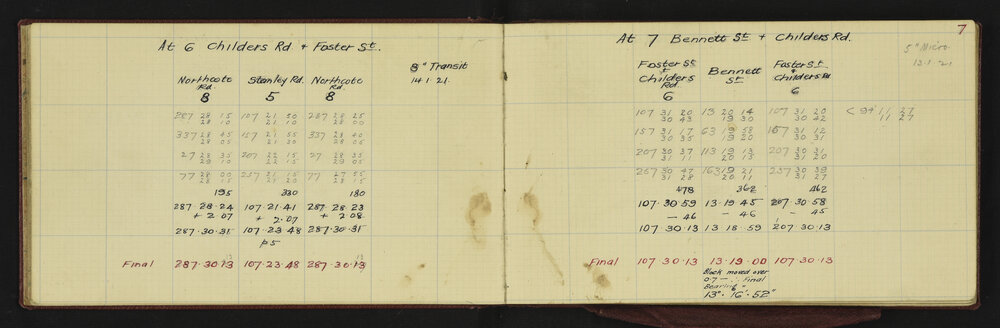 At 6 Childers Rd + Foster St.
8" Transit
14.1.21.
Northcote Stanley Rd. Northcote
Rd. Rd.
8 5 8
287 28 15 107 21 50 287 28 25
28 10 21 10 28 00
337 28 45 157 21 55 337 28 40
28 05 21 30 28 05
27 28 35 207 22 15 27 28 35
29 10 22 15 29 05
77 28 00 257 21 15 77 27 55
28 15 21 20 28 15
195 330 180
287.28.24 107.21.41 287.28.23
+ 2.07 + 2.07 + 2.08
287.30.31 107.23.48 287.30.31
p5
Final 287.30.13 107.23.48 287.30.13
7
At 7 Bennett St + Childers Rd.
5" Micro.
Foster St Bennett Foster St
+ St +
Childers Childers Rd
Rd.
6 6
107 31 20 13 20 14 107 31 20
30 43 19 30 30 42
< 94° 11 27
11 27
157 31 17 63 19 58 157 31 12
30 35 19 20 30 31
207 30 37 113 19 13 207 31 20
31 11 20 15 30 31
257 30 47 163 19 21 257 30 39
31 28 20 11 31 27
478 362 462
107.30 59 13.19.45 207.30.58
- 46 - 46 - 45
107.30.13 13.18.59 207.30.13
Final 107.30.13 13.19.00 107.30.13
Block moved over
0.7 Final
Bearing
13°.16'.52"